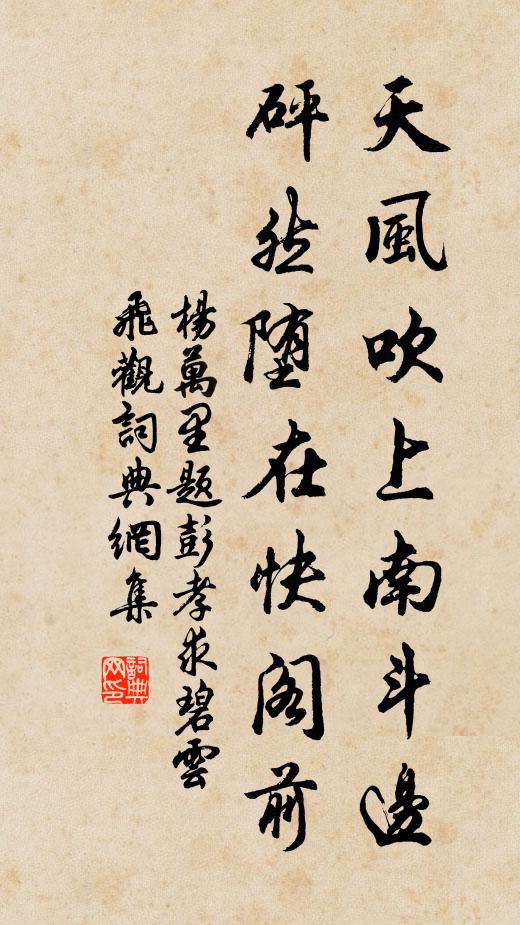 天風吹上南斗邊
砰然墮在快阁前
楊萬里题彭孝求碧雲
飛觀詞典網集
詞典
网印